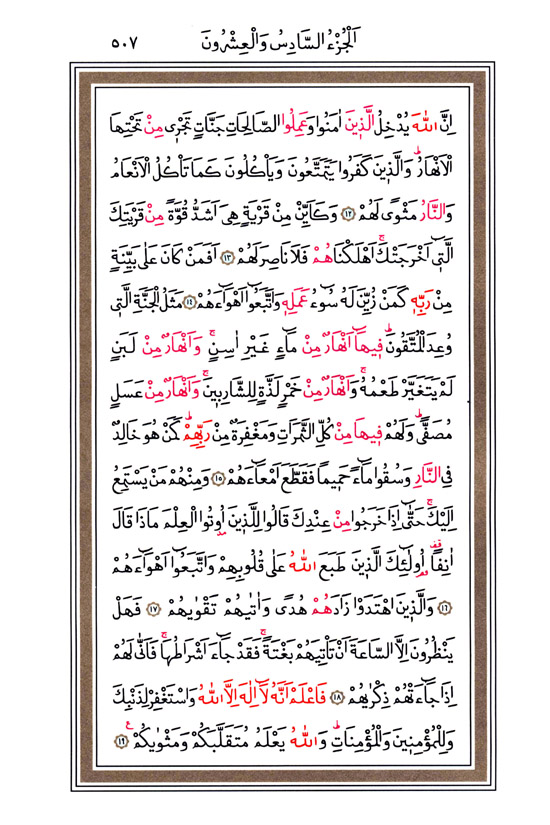 اَلْجُزْءُ السَّادِسُ وَالْعِشْرُونَ ٥٠٧
اِنَّ اللّٰهَ يُدْخِلُ الَّذ۪ينَ اٰمَنُوا وَعَمِلُوا الصَّالِحَاتِ جَنَّاتٍ تَجْر۪ي مِنْ تَحْتِهَا
الْاَنْهَارُۜ وَالَّذ۪ينَ كَفَرُوا يَتَمَتَّعُونَ وَيَأْكُلُونَ كَمَا تَأْكُلُ الْاَنْعَامُ
وَالنَّارُ مَثْوًى لَهُمْ ﴿١٢﴾ وَكَاَيِّنْ مِنْ قَرْيَةٍ هِيَ اَشَدُّ قُوَّةً مِنْ قَرْيَتِكَ
الَّت۪ٓي اَخْرَجَتْكَۚ اَهْلَكْنَاهُمْ فَلَا نَاصِرَ لَهُمْ ﴿١٣﴾ اَفَمَنْ كَانَ عَلٰى بَيِّنَةٍ
مِنْ رَبِّه۪ كَمَنْ زُيِّنَ لَهُ سُٓوءُ عَمَلِه۪ وَاتَّبَعُٓوا اَهْوَٓاءَهُمْ ﴿١٤﴾ مَثَلُ الْجَنَّةِ الَّت۪ي
وُعِدَ الْمُتَّقُونَۜ ف۪يهَٓا اَنْهَارٌ مِنْ مَٓاءٍ غَيْرِ اٰسِنٍۚ وَاَنْهَارٌ مِنْ لَبَنٍ
لَمْ يَتَغَيَّرْ طَعْمُهُۚ وَاَنْهَارٌ مِنْ خَمْرٍ لَذَّةٍ لِلشَّارِب۪ينَۚ وَاَنْهَارٌ مِنْ عَسَلٍ
مُصَفًّىۜ وَلَهُمْ ف۪يهَا مِنْ كُلِّ الثَّمَرَاتِ وَمَغْفِرَةٌ مِنْ رَبِّهِمْۜ كَمَنْ هُوَ خَالِدٌ
فِي النَّارِ وَسُقُوا مَٓاءً حَم۪يمًا فَقَطَّعَ اَمْعَٓاءَهُمْ ﴿١٥﴾ وَمِنْهُمْ مَنْ يَسْتَمِعُ
اِلَيْكَۚ حَتّٰٓى اِذَا خَرَجُوا مِنْ عِنْدِكَ قَالُوا لِلَّذ۪ينَ اُو۫تُوا الْعِلْمَ مَاذَا قَالَ
اٰنِفًا۠ اُو۬لٰٓئِكَ الَّذ۪ينَ طَبَعَ اللّٰهُ عَلٰى قُلُوبِهِمْ وَاتَّبَعُٓوا اَهْوَٓاءَهُمْ
﴿١٦﴾ وَالَّذ۪ينَ اهْتَدَوْا زَادَهُمْ هُدًى وَاٰتٰيهُمْ تَقْوٰيهُمْ ﴿١٧﴾ فَهَلْ
يَنْظُرُونَ اِلَّا السَّاعَةَ اَنْ تَأْتِيَهُمْ بَغْتَةًۚ فَقَدْ جَٓاءَ اَشْرَاطُهَاۚ فَاَنّٰى لَهُمْ
اِذَا جَٓاءَتْهُمْ ذِكْرٰيهُمْ ﴿١٨﴾ فَاعْلَمْ اَنَّهُ لَٓا اِلٰهَ اِلَّا اللّٰهُ وَاسْتَغْفِرْ لِذَنْبِكَ
وَلِلْمُؤْمِن۪ينَ وَالْمُؤْمِنَاتِۜ وَاللّٰهُ يَعْلَمُ مُتَقَلَّبَكُمْ وَمَثْوٰيكُمْ۟ ﴿١٩﴾